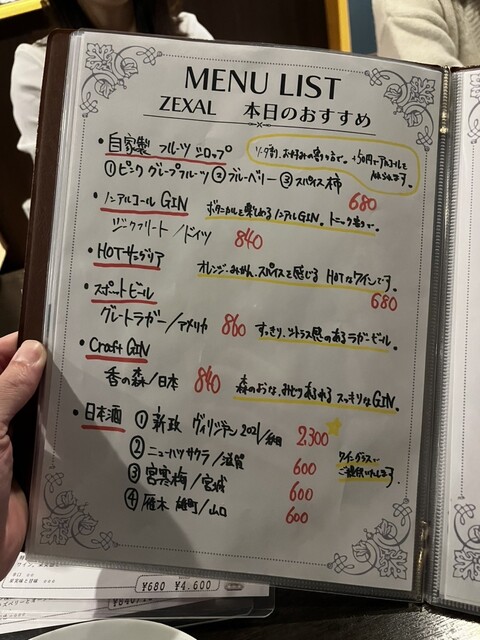 MENU LIST
ZEXAL 本日のおすすめ
・自家製 フルーツシロップ
ソーダ割、お好みの割り方で。+50円でアルコールを
①ピンクグレープフルーツ ②ブルーベリー ③スパイス柿
680
・ノンアルコールGIN
ボタニカルを楽しめるノンアルGIN。トニック割りで。
ジークフリート/ドイツ 840
・HOTサングリア
オレンジ、みかん、スパイスを感じる HOTなワインです。
680
・スポットビール
グレートラガー/アメリカ 860 すっきり、シトラス感のあるラガービール。
・Craft GIN
香の森/日本 840 森のような、みどりあふれる スッキリなGIN。
・日本酒 ①新政 ヴィリジアン2021/秋田 2,300
②ニューハツサクラ/滋賀 600
ワイングラスで
ご提供いたします。
③宮寒梅/宮城 600
④雁木 雄町/山口 600
¥680 ¥4,600